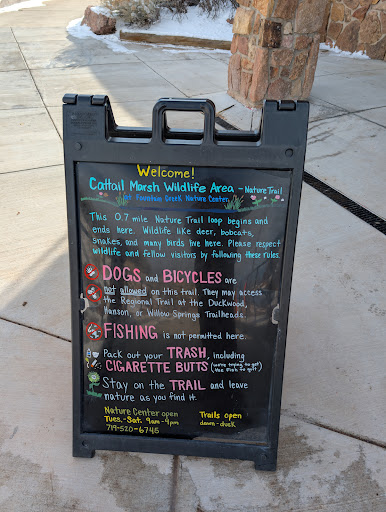 Welcome!
Cattail Marsh Wildlife Area - Nature Trail
at Fountain Creek Nature Center
This 0.7 mile Nature Trail loop begins and
ends here. Wildlife like deer, bobcats,
snakes, and many birds live here. Please respect
wildlife and fellow visitors by following these rules.
DOGS and BICYCLES are
not allowed on this trail. They may access
the Regional Trail at the Duckwood,
Hanson, or Willow Springs Trailheads.
FISHING is not permitted here.
Pack out your TRASH, including
CIGARETTE BUTTS (we're trying to get the fish to quit)
Stay on the TRAIL and leave
nature as you find it.
Nature Center open
Tues.-Sat. 9am-4pm
719-520-6745
Trails open
dawn-dusk